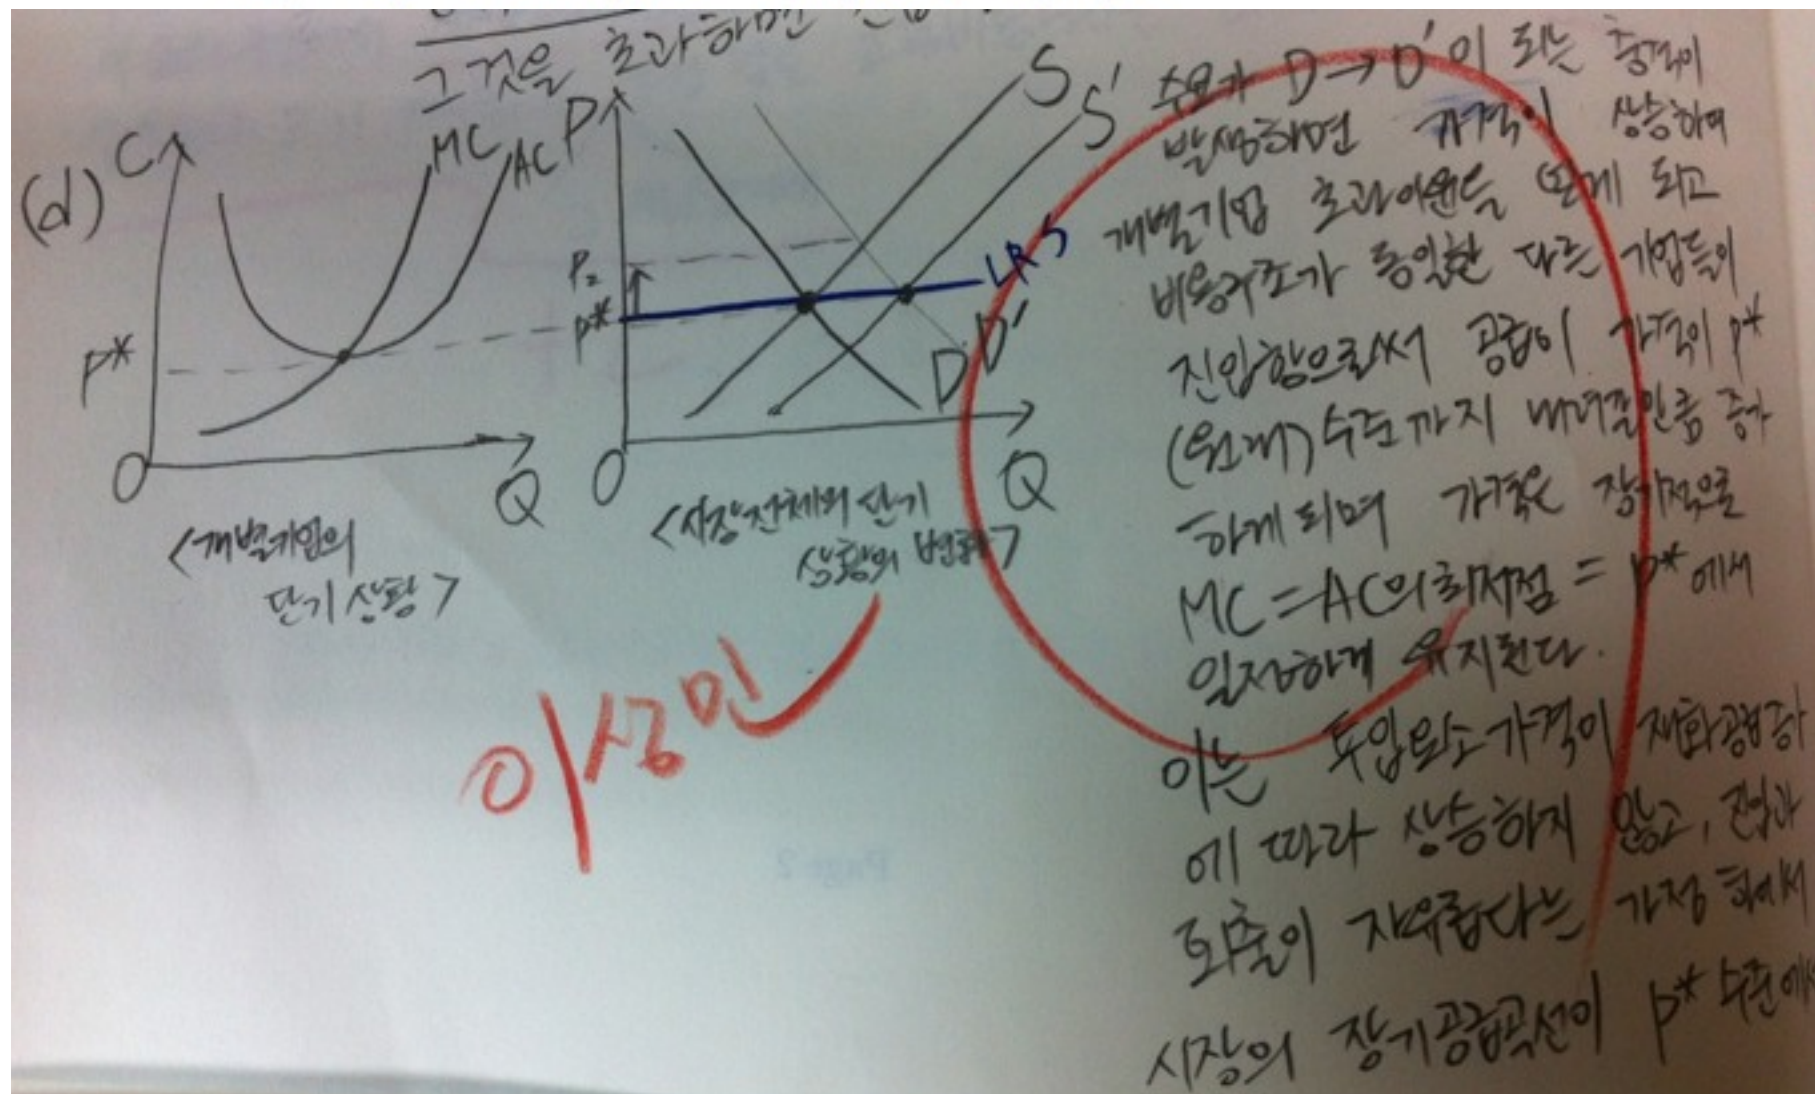 그것을 초과하면
(d)
C
MC
AC
P*
O
Q
<개별기업의
단기상황>
P
S
S'
P₂
P*
LRS
D
D'
O
Q
<시장전체의 단기
상황의 변화>
이상민
수요가 D→D'이 되는 충격이
발생하면 가격이 상승하여
개별기업 초과이윤을 얻게 되고
비용구조가 동일한 다른 기업들이
진입함으로써 공급이 가격이 P*
(원래)수준까지 내려갈만큼 증가
하게되며 가격은 장기적으로
MC=AC의최저점=P*에서
일정하게 유지된다.
이는 투입요소가격이 재화공급증가
에 따라 상승하지 않고, 진입과
퇴출이 자유롭다는 가정 하에서
시장의 장기공급곡선이 P* 수준에서